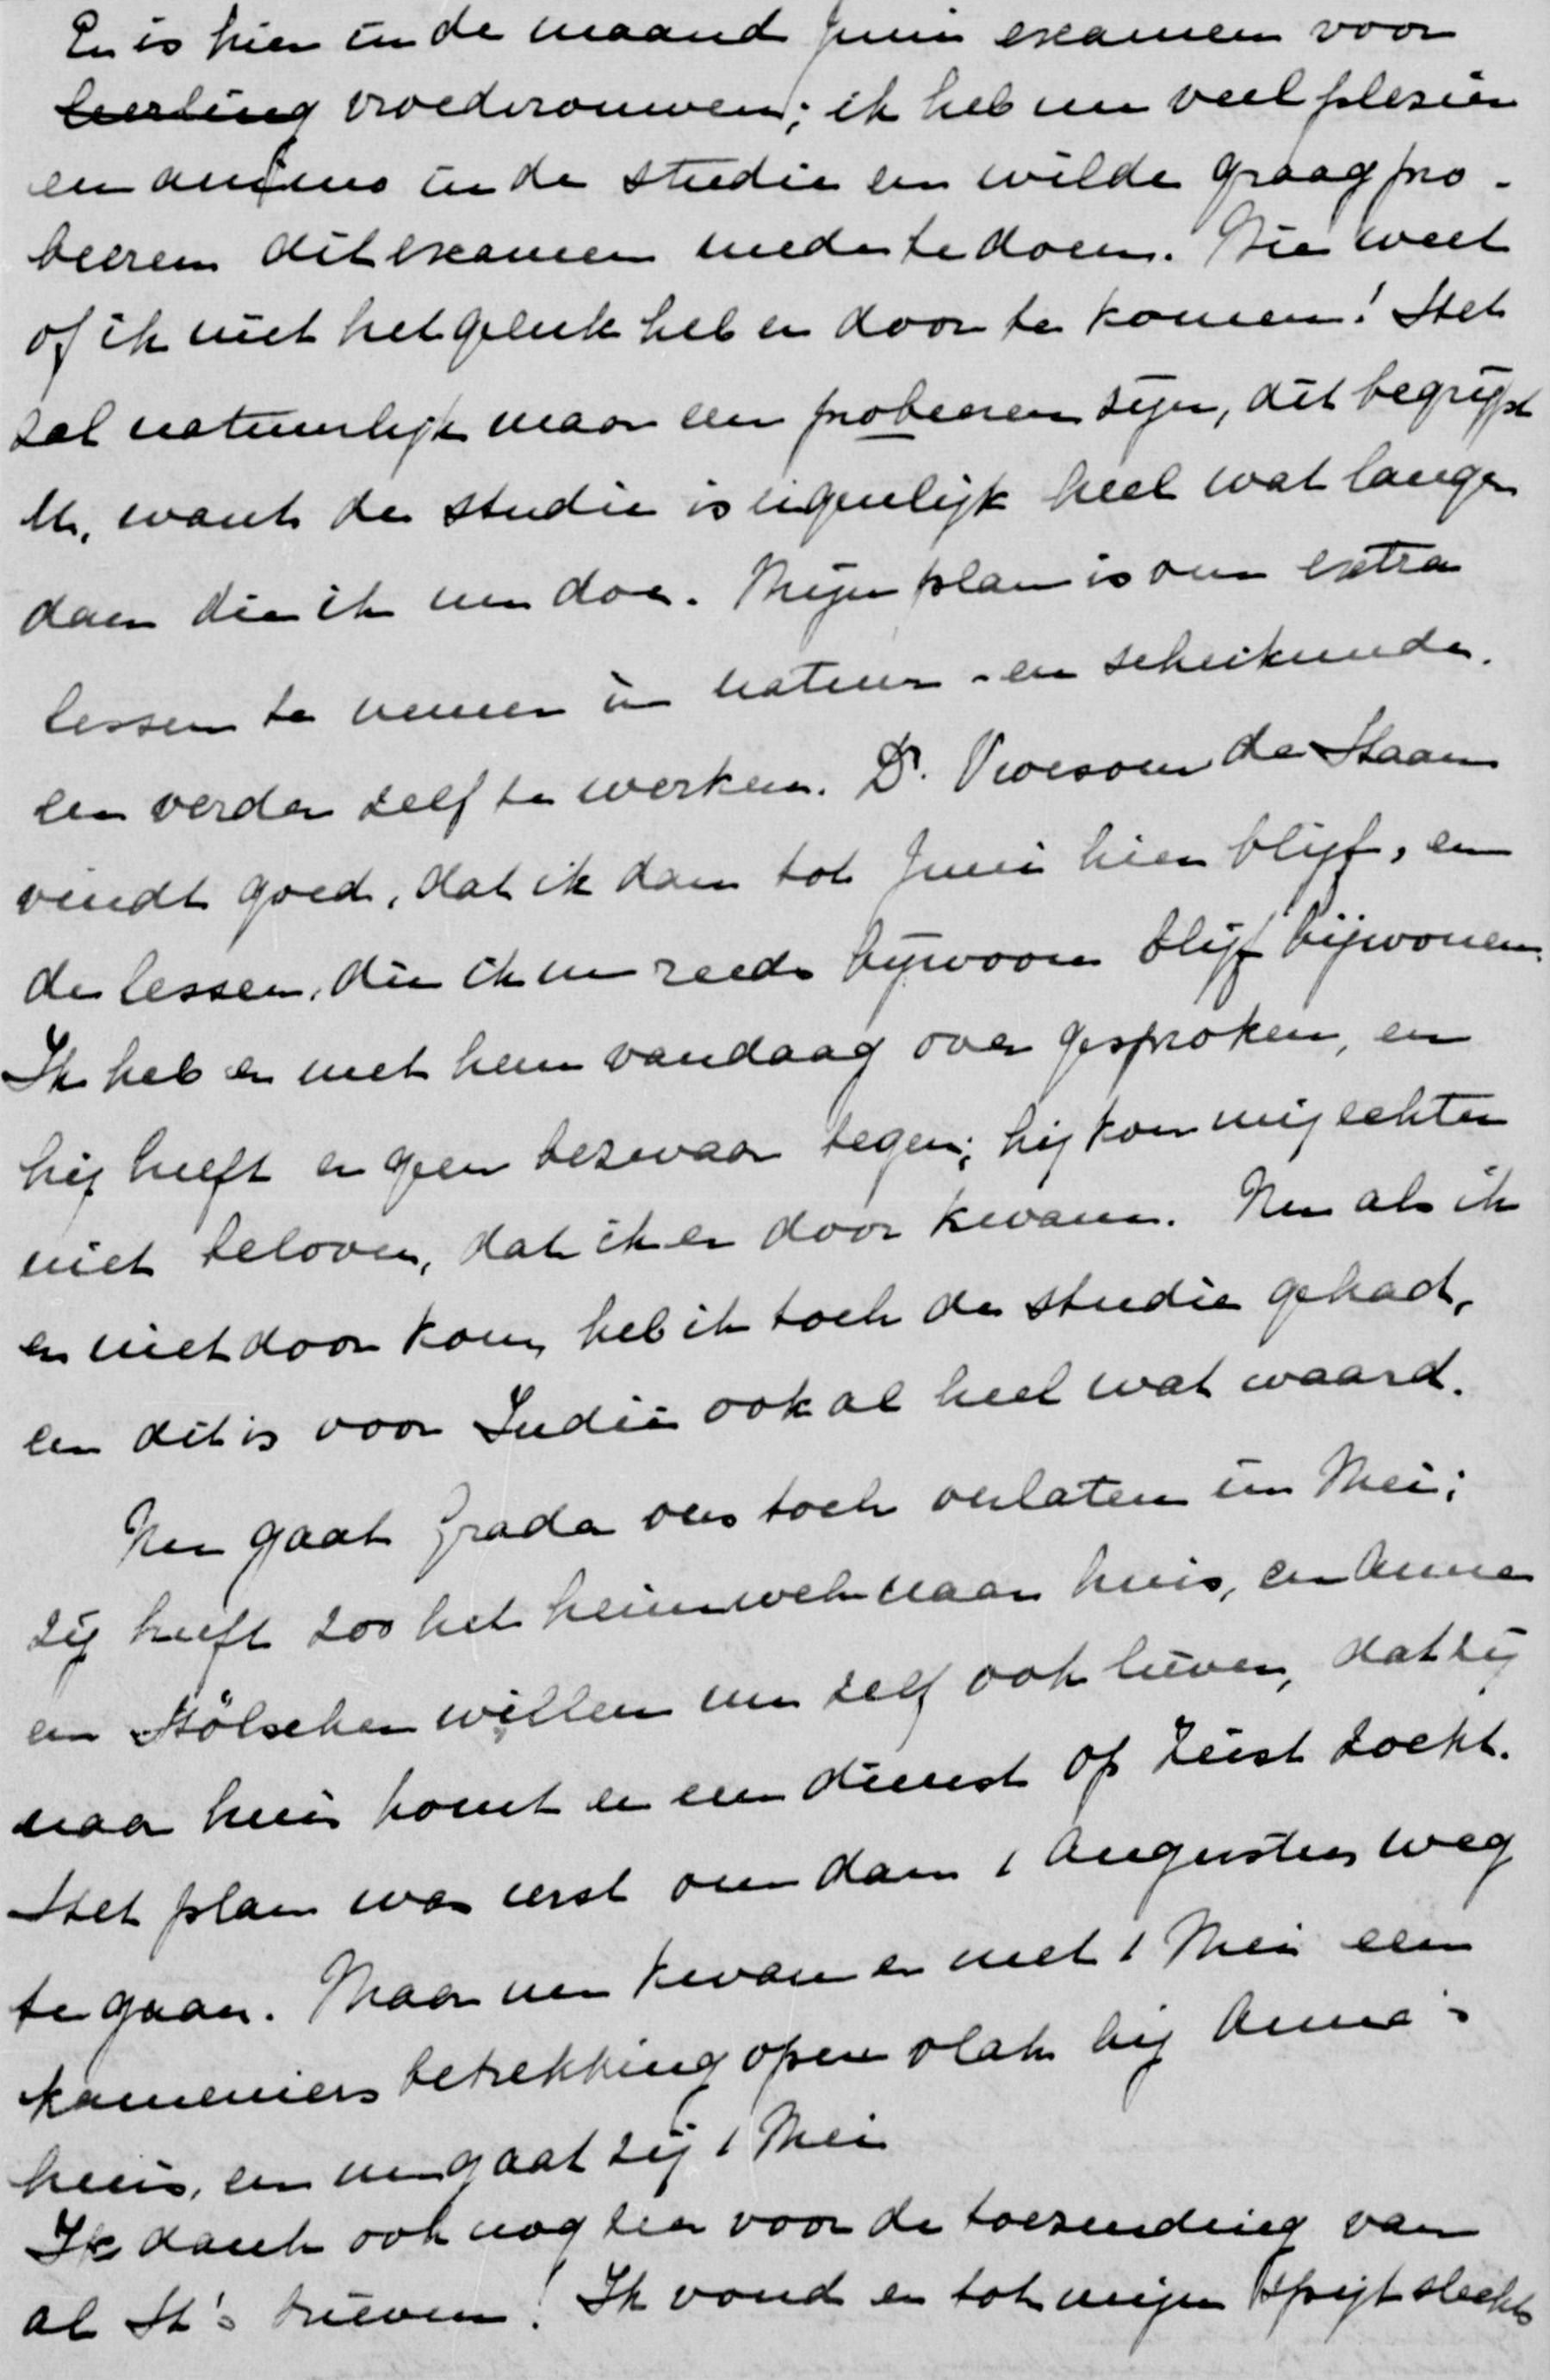 Er is hier in de maand Juni examen voor
leerling vroedvrouwen; ik heb nu veel plezier
en animo in de studie en wilde graag pro-
beeren dit examen mede te doen. Wie weet
of ik niet het geluk heb er door te komen! Het
zal natuurlijk maar een probeeren zijn, dit begrijpt
U, want de studie is eigenlijk heel wat langer
dan die ik nu doe. Mijn plan is om extra
lessen te nemen in natuur- en scheikunde.
en verder zelf te werken. Dr. Vroesom de Haan
vindt goed, dat ik dan tot Juni hier blijf, en
de lessen, die ik nu reeds bijwoon blijf bijwonen.
Ik heb er met hem vandaag over gesproken, en
hij heeft er geen bezwaar tegen; hij kon mij echter
niet beloven, dat ik er door kwam. Nu als ik
er niet door kom, heb ik toch de studie gehad,
en dit is voor Indië ook al heel wat waard.
Nu gaat Grada ons toch verlaten in Mei;
zij heeft zoo het heimweh naar huis, en Anna
en Hölscher willen nu zelf ook liever, dat zij
naar huis komt en een dienst op Zeist zoekt.
Het plan was eerst om dan 1 Augustus weg
te gaan. Maar nu kwam er met 1 Mei een
kameniers betrekking open vlak bij Anna's
huis, en nu gaat zij 1 Mei
Ik dank ook nog zeer voor de toezending van
al H's brieven! Ik vond er tot mijn spijt slechts